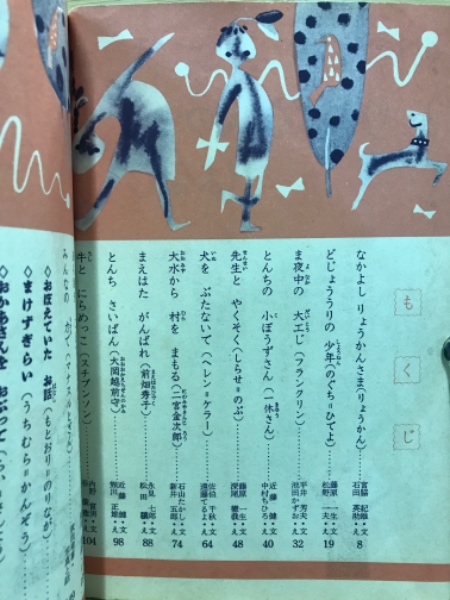 もくじ
なかよし りょうかんさま(りょうかん)……宮脇 紀雄・文 石田 英助・え 8
どじょううりの 少年(のぐち=ひでよ)……藤原 一生・文 松野 一夫・え 19
ま夜中の 大工じ(フランクリン)……平井 芳夫・文 池田かずお・え 32
とんちの 小ぼうずさん(一休さん)……近藤 健・文 中村ちひろ・え 40
先生と やくそく(しらせ=のぶ)……藤原 一生・文 深尾 ・え 48
犬を ぶたないで(ヘレン=ケラー)……佐伯 千秋・文 遠藤てるよ・え 64
大水から 村を まもる(二宮金次郎)……石山たかし・文 新井 五郎・え 74
まえはた がんばれ(前畑秀子)……永見 七郎・文 松田 ・え 88
とんち さいばん(大岡越前守)……近藤 健・文 熊川 正雄・え 98
牛と にらめっこ(スチブンソン)……内野 ・文 104
みんなの
◇おぼえていた お話(もとおり=のりなが)
◇まけずぎらい(うちむら=かんぞう)
◇おかあさんを おぶって